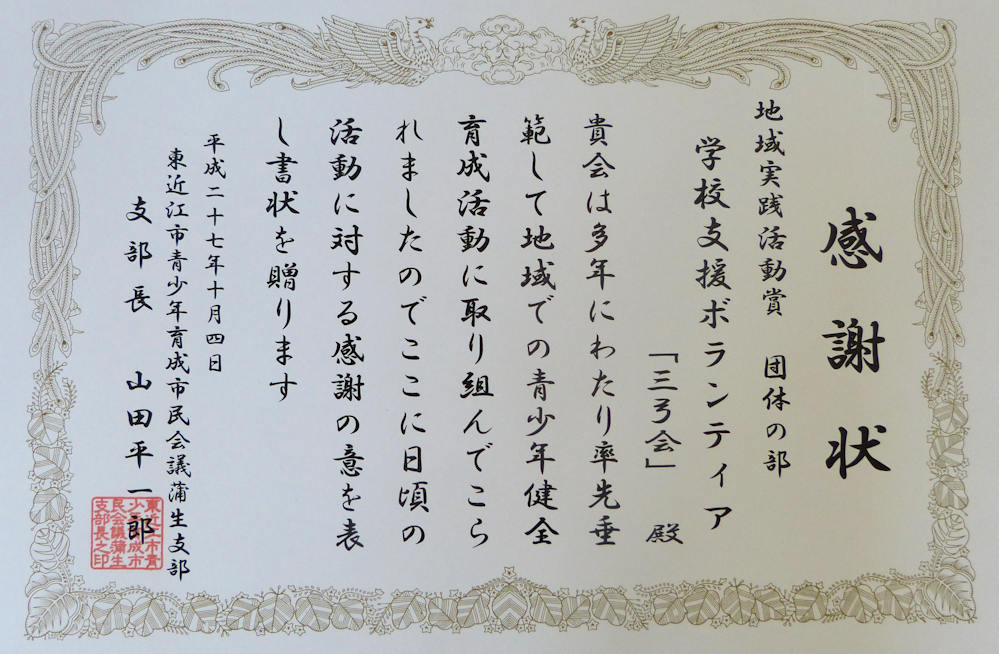 感謝状
地域実践活動賞 団体の部
学校支援ボランティア
「三弓会」 殿
貴会は多年にわたり率先垂
範して地域での青少年健全
育成活動に取り組んでこら
れましたのでここに日頃の
活動に対する感謝の意を表
し書状を贈ります
平成二十七年十月四日
東近江市青少年育成市民会議蒲生支部
支部長 山田平一郎
東近江市青
少年育成市
民会議蒲生
支部長之印